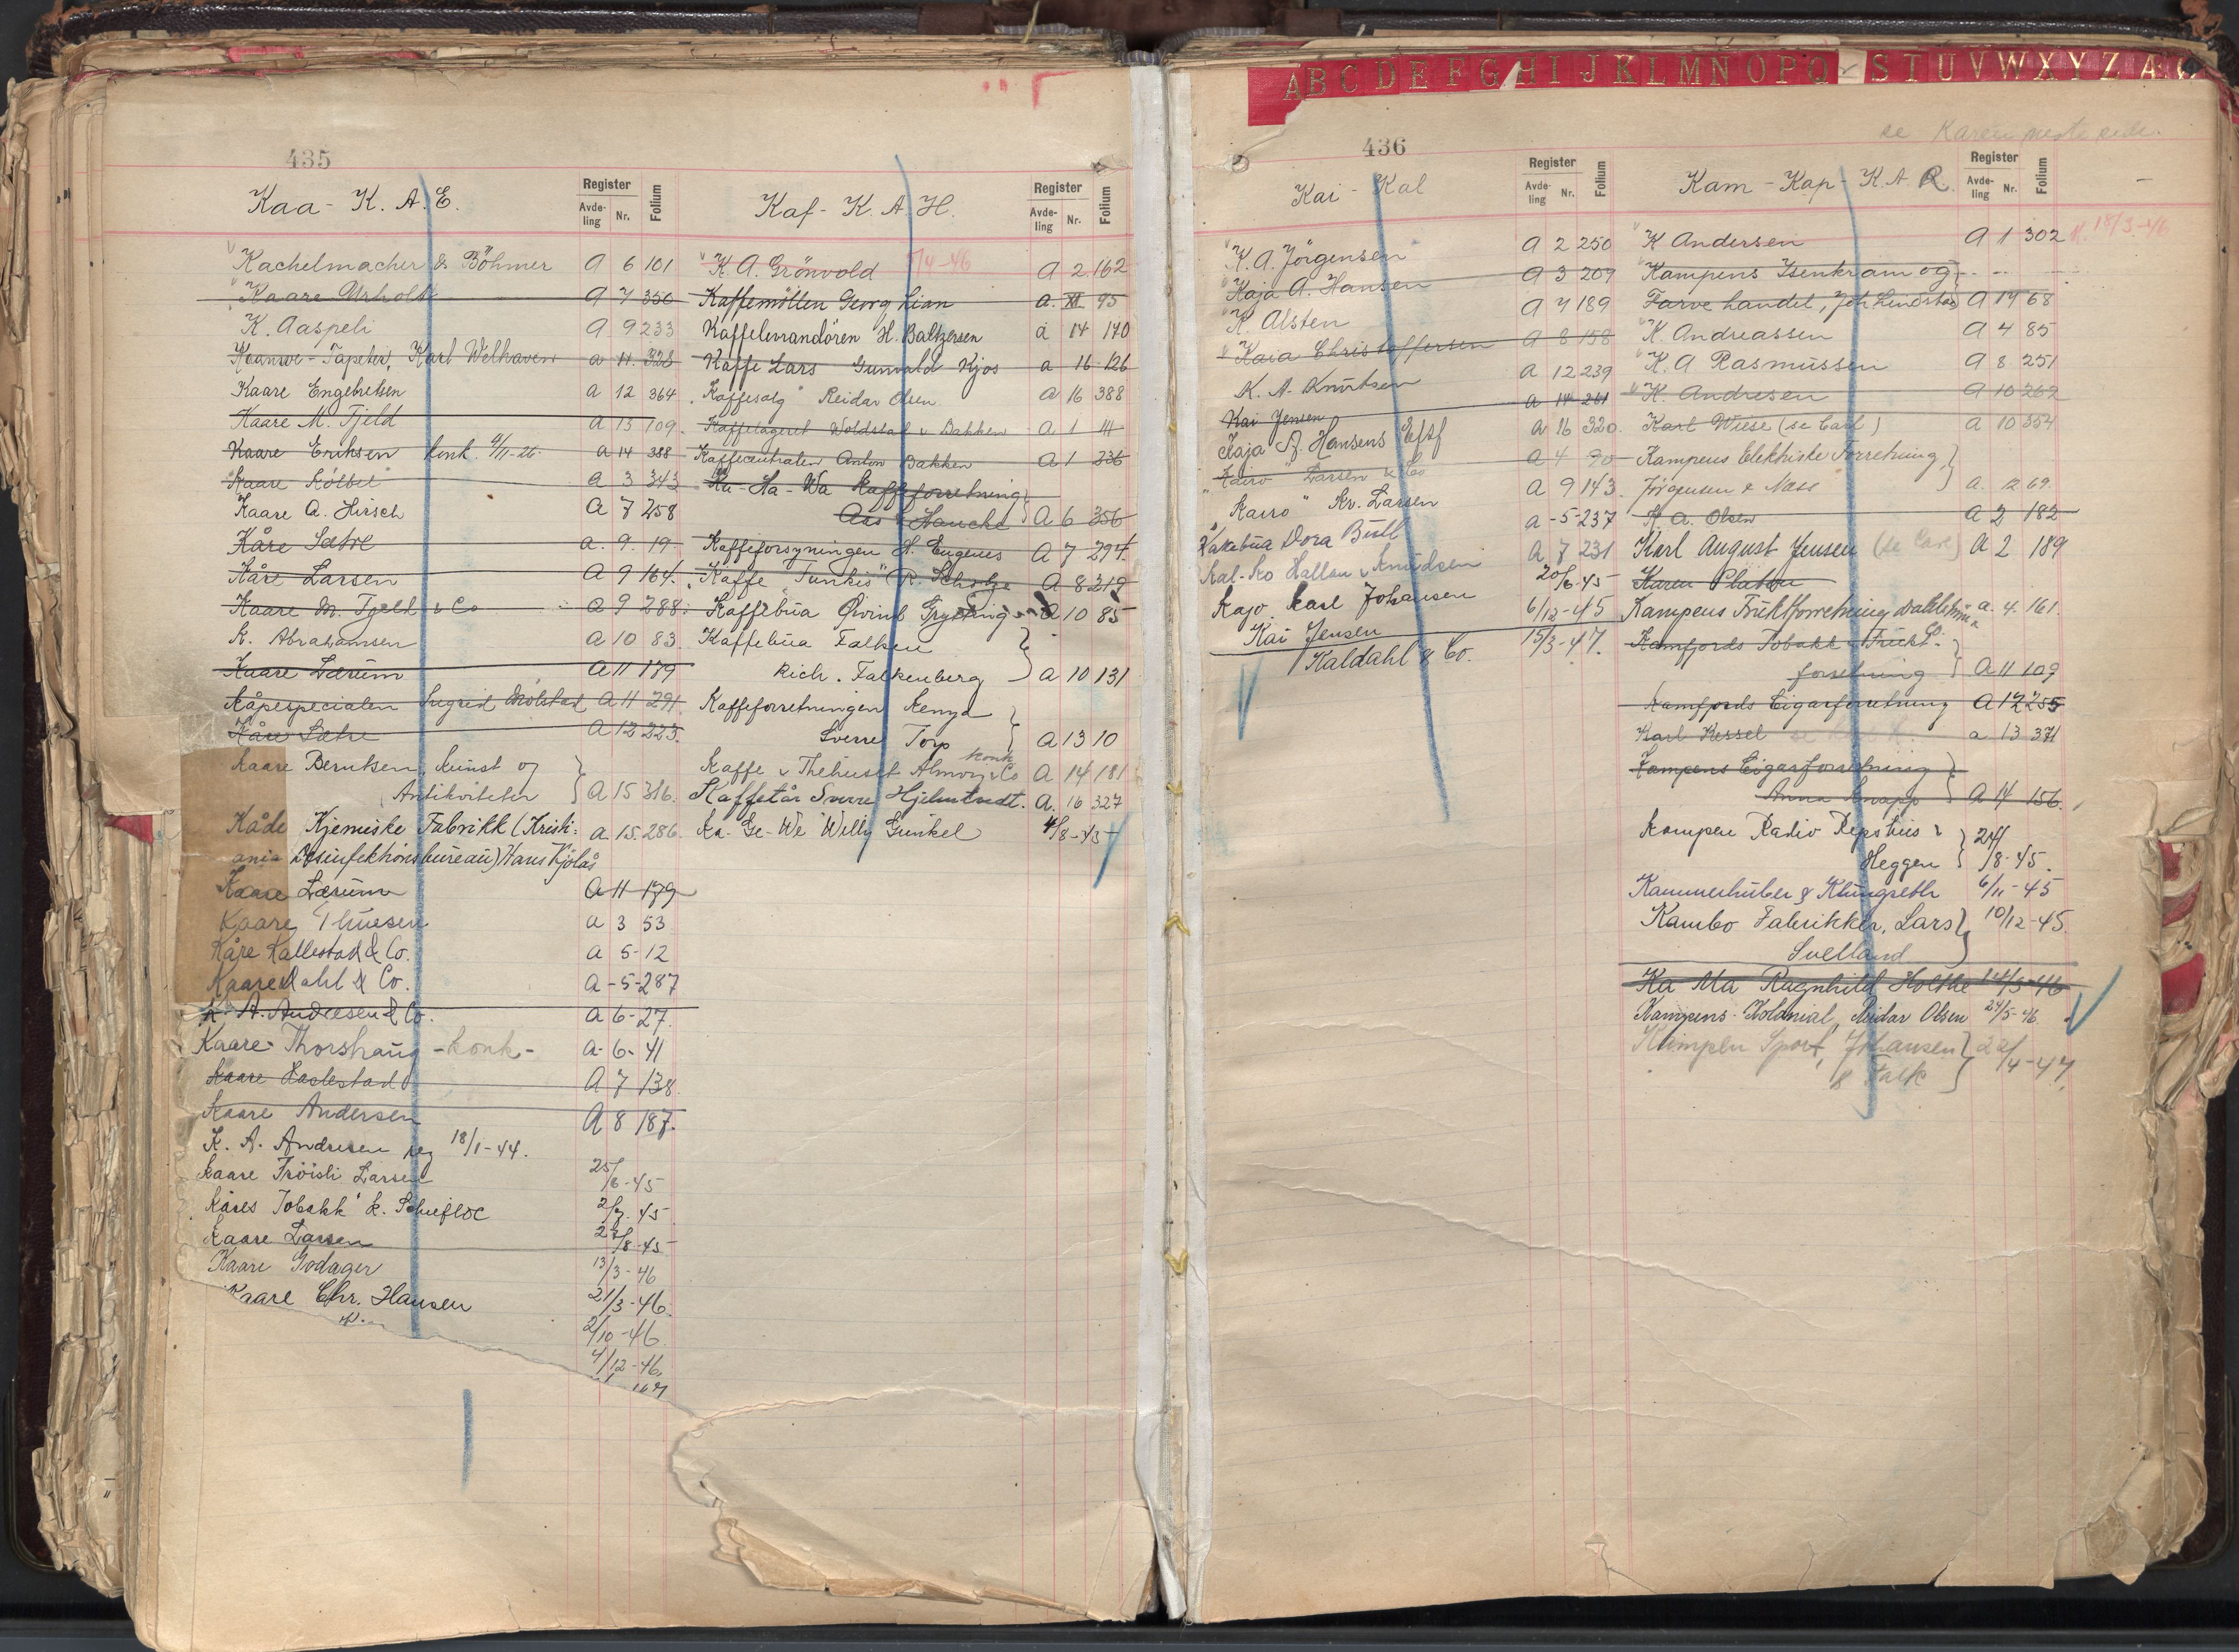 435
Kaa - K. A. E.
Register
Avde-
ling
Nr.
Folium
Kachelmacher & Böhmer A 6 101
Kaare Urholdt A 7 350
K. Aaspeli A 9 233
Tapeter, Karl Welhaven a 11. 328
Kaare Engebretsen A 12 364
Kaare M. Tjeld A 13 109
Kaare Eriksen konk. 4/11-26. A 14 388
Kaare Kölbel A 3 343
Kaare A. Hirsch A 7 258
Kåre Sætre a. 9. 19.
Kåre Larsen A 9 164.
Kaare M. Tjeld & Co A 9 288.
K. Abrahamsen A 10 83
Kaare Lærum A 11 179
Kåpespecialen Ingrid Molstad A 11 291.
Kåre Sætre A 12 223.
Kaare Berntsen, kunst og
Antikviteter A 15 316.
Kåde Kjemiske Fabrikk (Kristi=
ania Desinfektionsbureau) Hans Kjölås A. 15. 286.
Kaare Lærum A 11 179
Kaare Thuesen a 3 53
Kåre Kallestad & Co. a 5-12
Kaare Dahl & Co. a-5-287
K. A. Andresen & Co. a 6-27.
Kaare Thorshaug - konk - a-6-41
Kaare Haslestad A 7 138
Kaare Andersen A 8 187.
K. A. Andresen reg 18/1-44.
Kaare Tröisli Larsen 25/6-45
Kåres Tobakk K. Schefloe 2/7-45
Kaare Larsen 22/8-45
Kaare Godager 13/3-46
Kaare Chr. Hansen 21/3-46.
2/10-46
4/12-46.
Kaf - K. A. H.
Register
Avde-
ling
Nr.
Folium
K. A. Grönvold 7/4-46 A 2 162
Kaffemöllen Georg Lian a. XII 95
Kaffeleverandören H. Baltzersen a 14 140
Kaffe Lars Gunvald Kjos a 16-126
"Kaffesalg" Reidar Olsen A 16 388
Kaffelageret Woldstad & Bakken A 1 111
Kaffecentralen Anton Bakken A 1 336
Ka-Ha-Wa Kaffeforretning
Aas & Hauche A 6 356
Kaffeforsyningen H. Eugenes A 7 294.
Kaffe "Funkis" (R. Scholze A 8 319
Kaffebua Öivind Grytting A 10 85
Kaffebua Falken
Rich. Falkenberg A 10 131
Kaffeforretningen Kenya
Sverre Torp A 13 10
konk
Kaffe & Thehuset Almvig & Co A 14 181
Kaffetår Sverre Hjelmtvedt. A. 16 327
Ka-Ge-We Willy Gunkel 4/8-45
436
Kai - Kal
Register
Avde-
ling
Nr.
Folium
K. A. Jörgensen A 2 250
Kaja A. Hansen A 3 209
K. Alsten A 7 189
Kaia Christoffersen A 8 158
K. A. Knutsen A 12 239
Kai Jensen a 14 261
Kaja A. Hansens Eftf A 16 320.
"Kairo" Larsen & Co A 4 90
"Kairo" Kr. Larsen A 9 143.
Kakebua Dora Bull a-5-237
Kal-Ko Hallan & Knudsen A 7 231
Kajo, Karl Johansen 20/6-45
Kai Jensen 6/12-45
Kaldahl & Co. 15/3-47.
se Karen neste side.
Kam - Kap - K. A. R.
Register
Avde-
ling
Nr.
Folium
K Andersen A 1 302 18/3-46
Kampens Isenkram og
Farvehandel, Joh. Lindstad A 14 68
K. Andreassen A 4 85
K. A Rasmussen A 8 251
K. Andresen A 10 262
Karl Wiese (se Carl) A 10 354
Kampens Elektriske Forretning,
Jörgensen & Næss A. 12 69.
K. A. Olsen A 2 182
Karl August Jensen (se Carl) A 2 189
Karen Platou
Kampens Fruktforretning a. 4. 161.
Kamfjords Tobakk & Frukt-
forretning A 11 109
Kamfjords Cigarforretning A 12 255
Karl Kessel a 13 371
Kampens Cigarforretning
Anna Knapp A 14 156.
Kampen Radio Repshus &
Heggen 24/8-45.
Kammerhuber & Klungseth 6/11-45
Kambo Fabrikker, Lars
Svelland 10/12-45.
Ka Ma Ragnhild Holthe 14/3-46
Kampens Kolonial, Reidar Olsen 24/5-46
Kampen Sport, Johansen
& Falk 22/4-47.
A B C D E F G H I J K L M N O P Q S T U V W X Y Z Æ